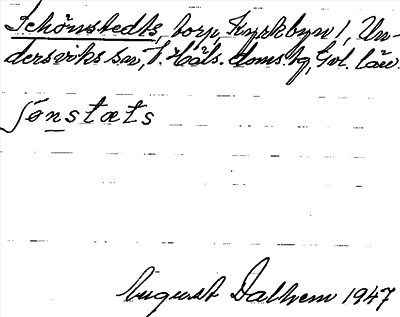 Schönstedts, torp, Kyrkbyn 1, Un-
dersviks sn, V. Häls. doms. tg, Gvl. län.
ʃønstæts
August Dalhem 1947